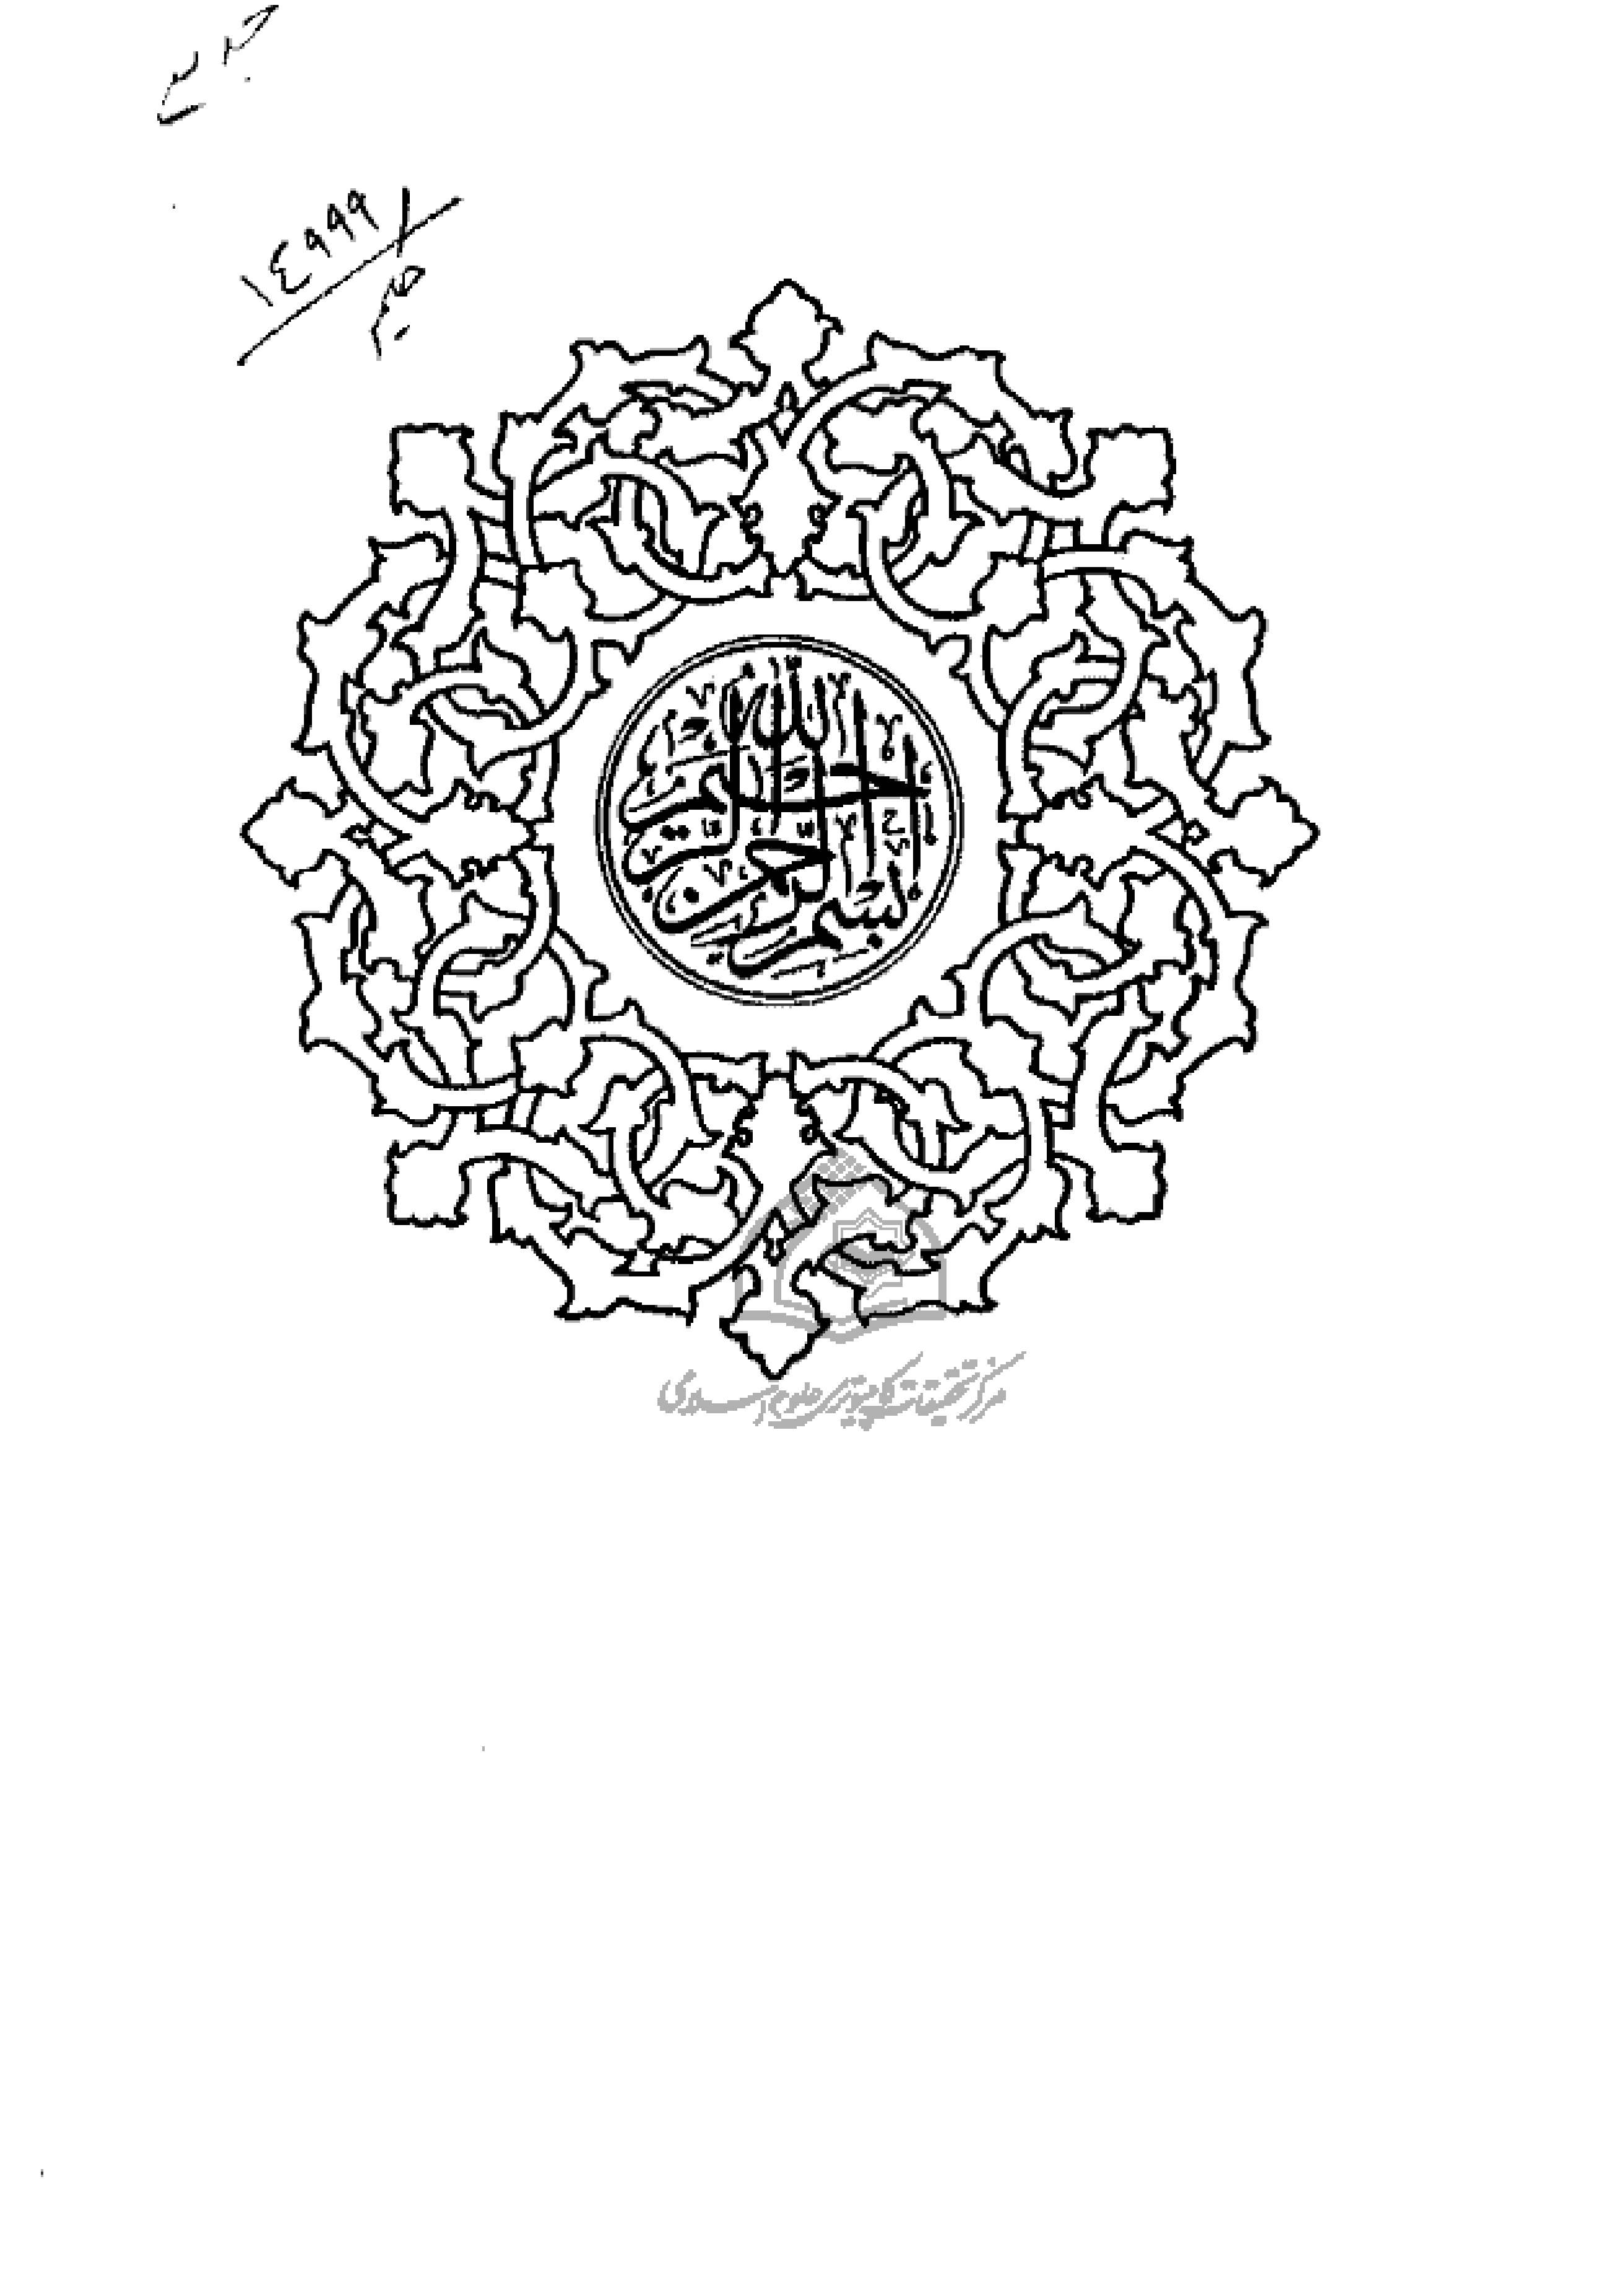 ١٤٩٩٩
بسم الله الرحمن الرحيم
مرکز تحقیقات کامپیوتری علوم اسلامی